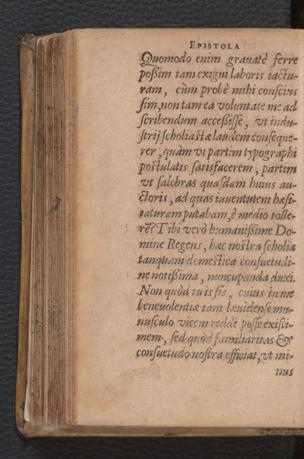 EPISTOLA
Quomodo enim grauatè ferre
poßim tam exigui laboris iactu-
ram, cùm probè mihi conscius
sim, non tam ea voluntate me ad
scribendum accessisse, vt indu-
strij scholiastæ laudem conseque-
rer, quàm vt partim typographi
postulatis satisfacerem, partim
vt salebras quasdam huius au-
ctoris, ad quas iuuentutem hæsi-
taturam putabam, è medio tolle-
rē? Tibi verò humanißime Do-
mine Regens, hæc nostra scholia
tanquam domestica consuetudi-
ne notißima, nuncupanda duxi.
Non quòd tu is sis, cuius in me
beneuolentiæ tam leuidense mu-
nusculo vicem reddi posse existi-
mem, sed quòd familiaritas &
consuetudo nostra efficiat, vt mi-
nus